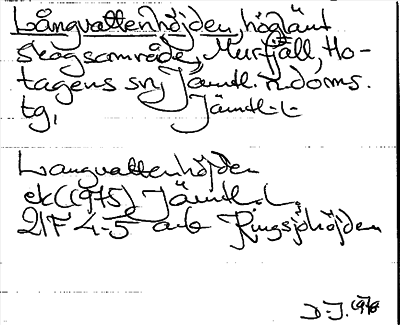 Långvattenhöjden, höglänt
skogsområde, Murfjäll, Ho-
tagens sn, Jämtl. n. doms.
tg, Jämtl. l.
Långvattenhöjden
ek (1975) Jämtl. l.
21F 4-5 a-b Ringsjöhöjden
D.J. 1978